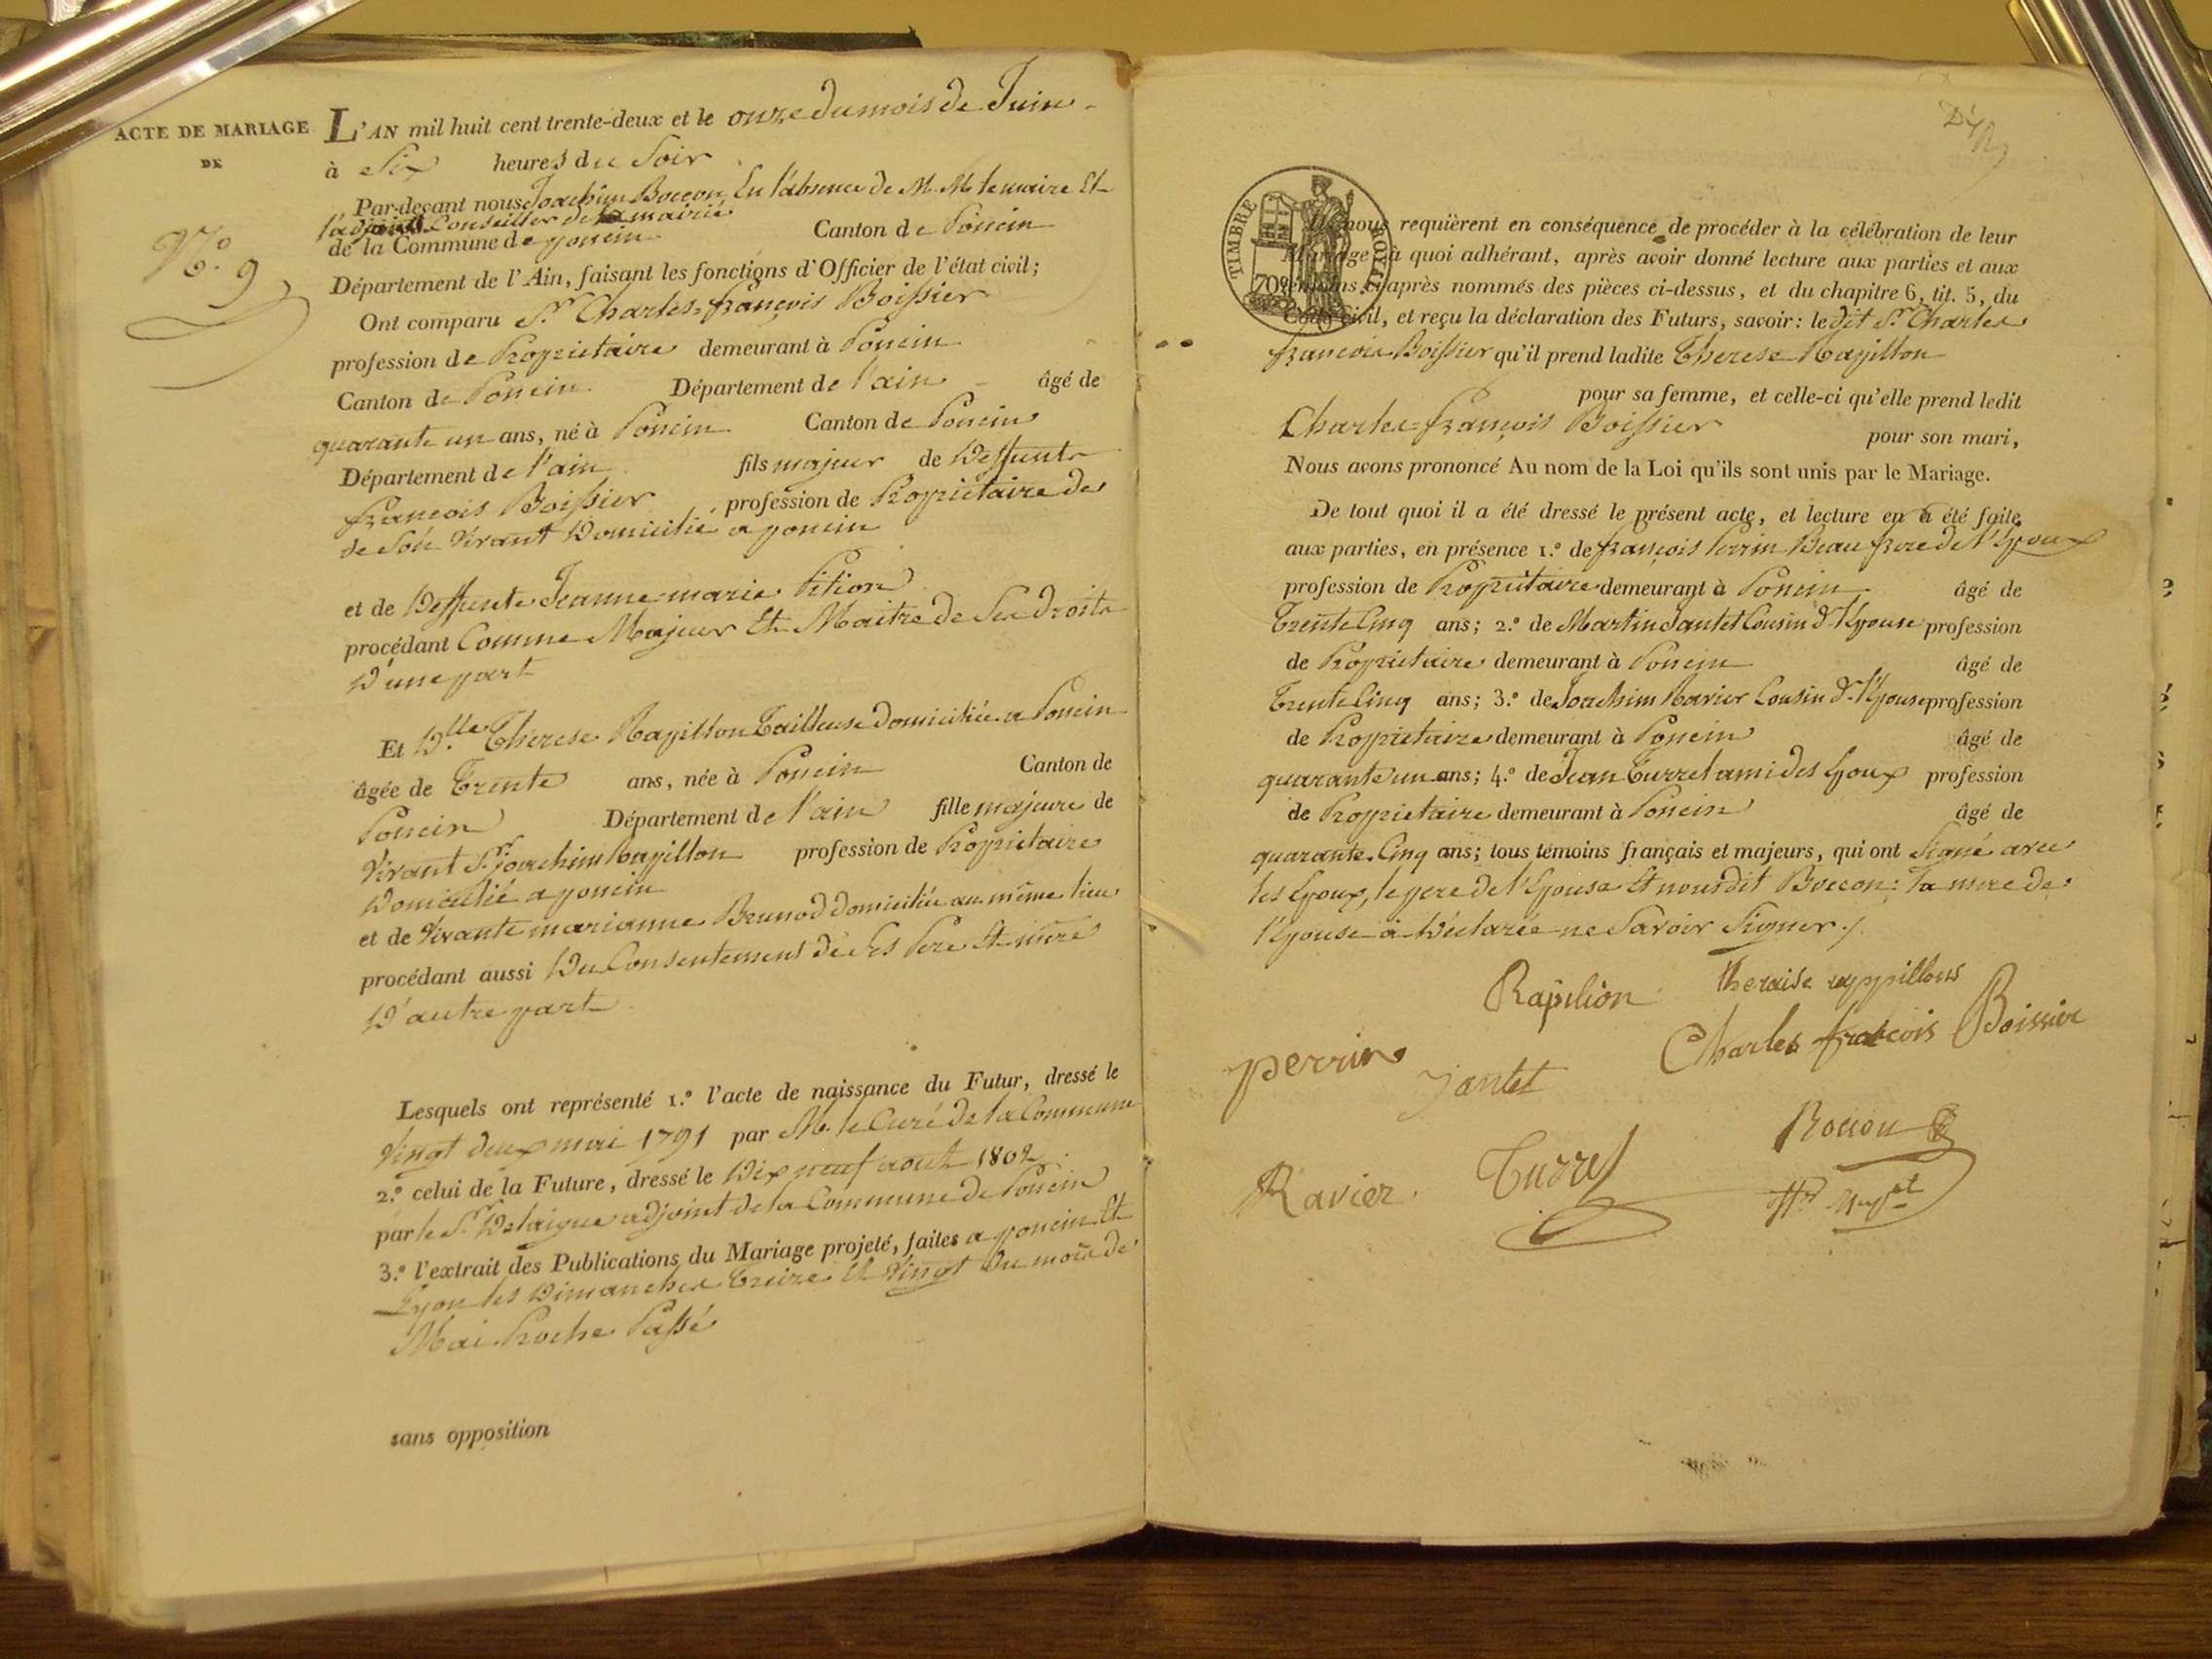 ACTE DE MARIAGE
DE
N.o 9
L'AN mil huit cent trente-deux et le onze du mois de Juin
à Six heures du Soir
Par-devant nous Joachim Boccon, En l'absence de M. M. le maire Et
l'adjoint Conseiller de la mairie
de la Commune de poncin Canton de Poncin
Département de l'Ain, faisant les fonctions d'Officier de l'état civil;
Ont comparu S.r Charles-françois Boissier
profession de Propriétaire demeurant à Poncin
Canton de Poncin Département de l'ain âgé de
quarante un ans, né à Poncin Canton de Poncin
Département de l'ain fils majeur de Deffunt
françois Boissier profession de Propriétaire de
de Son Vivant Domicilié a poncin
et de Deffunte Jeanne marie Pition
procédant Comme Majeur Et Maitre de Ses Droits
D'une part
Et D.lle Therese Rapillon Tailleuse domiciliée a Poncin
âgée de Trente ans, née à Poncin Canton de
Poncin Département de l'ain fille majeure de
Vivant S.r joachim Rapillon profession de Propriétaire
Domicilié a poncin
et de Vivante marianne Brunod domiciliée au même lieu
procédant aussi Du Consentement de Ses Pere Et mere
D'autre part
Lesquels ont représenté 1.o l'acte de naissance du Futur, dressé le
Vingt deux mai 1791 par M. le Curé de la Commune
2.o celui de la Future, dressé le Dix neuf aout 1802
par le S.r Delaigue adjoint de la Commune de Poncin
3.o l'extrait des Publications du Mariage projeté, faites a poncin Et
Lyon les Dimanches Treize Et Vingt du mois de
Mai Proche Passé
sans opposition
TIMBRE ROYAL
70
nous requièrent en conséquence de procéder à la célébration de leur
Mariage à quoi adhérant, après avoir donné lecture aux parties et aux
témoins ci-après nommés des pièces ci-dessus, et du chapitre 6, tit. 5, du
Code civil, et reçu la déclaration des Futurs, savoir: le dit S.r Charles
françois Boissier qu'il prend ladite Therese Rapillon
pour sa femme, et celle-ci qu'elle prend ledit
Charles-françois Boissier pour son mari,
Nous avons prononcé Au nom de la Loi qu'ils sont unis par le Mariage.
De tout quoi il a été dressé le présent acte, et lecture en a été faite
aux parties, en présence 1.o de françois Perrin Beau frere de l'Epoux
profession de Propriétaire demeurant à Poncin âgé de
Trente Cinq ans; 2.o de Martin Jantet Cousin d l'Epouse profession
de Propriétaire demeurant à Poncin âgé de
Trente Cinq ans; 3.o de Joachim Ravier Cousin d l'Epouse profession
de Propriétaire demeurant à Poncin âgé de
quarante un ans; 4.o de Jean Turrel ami des Epoux profession
de Propriétaire demeurant à Poncin âgé de
quarante Cinq ans; tous témoins français et majeurs, qui ont Signé avec
les Epoux, le pere de l'Epouse Et nous dit Boccon: la mere de
l'Epouse a Déclarée ne Savoir Signer ./.
Rapilion theraise rappillons
perrin Jantet Charles francois Boissier
Ravier Turrel Boccon